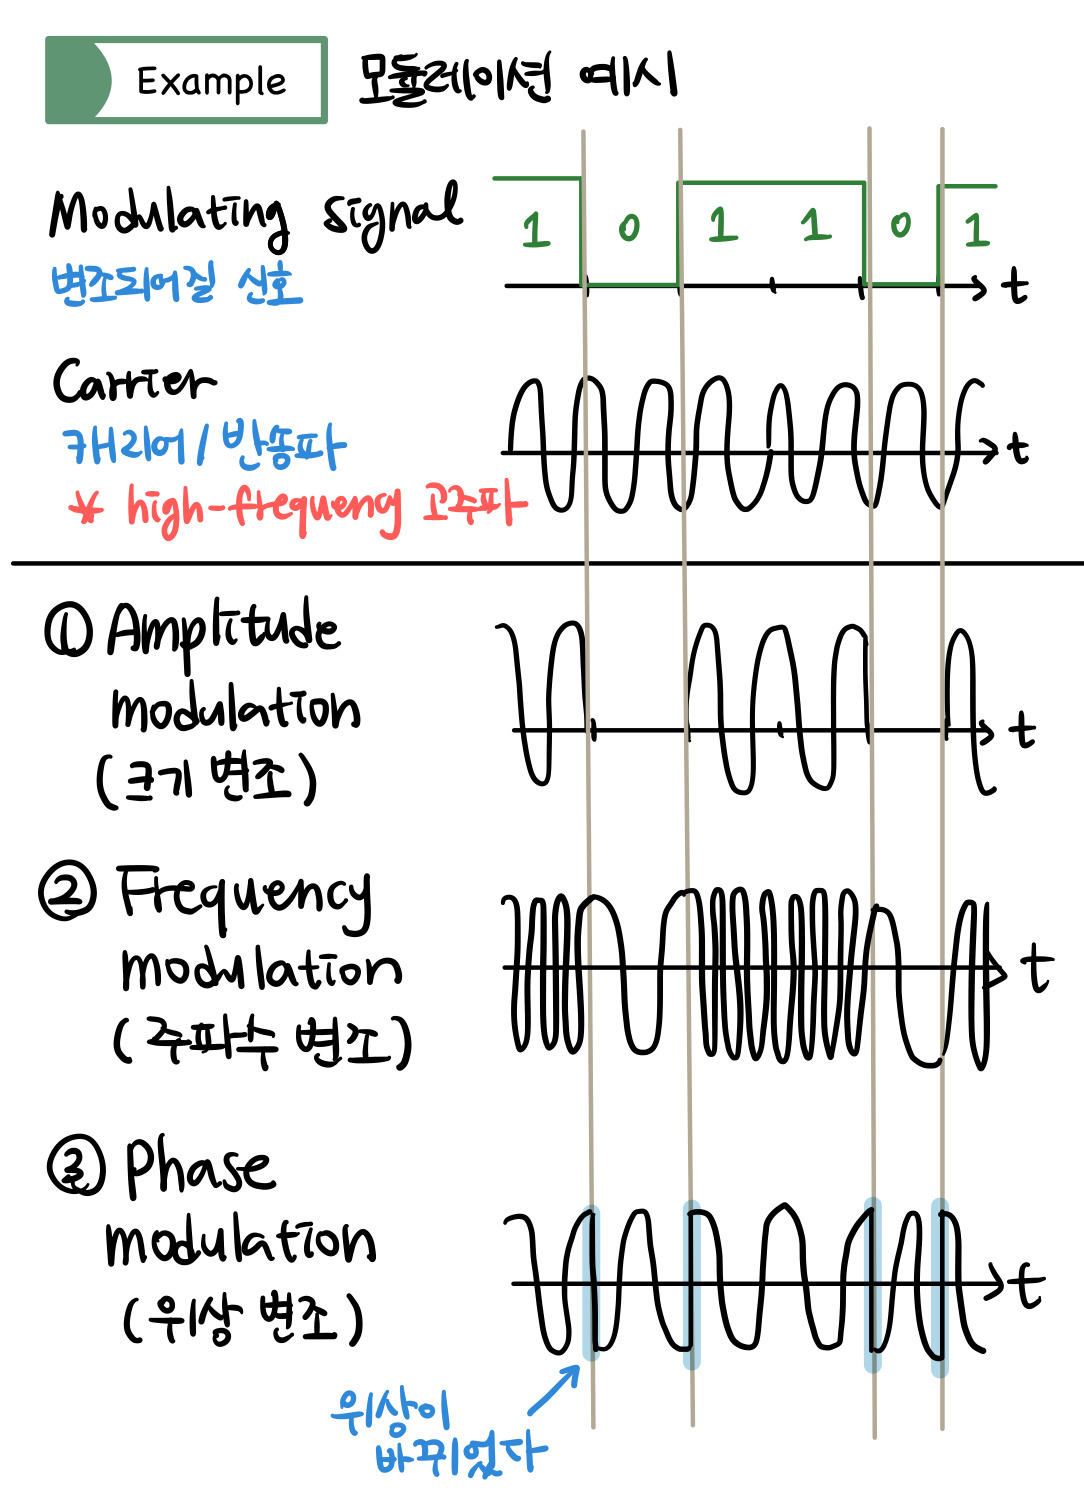 Example 모듈레이션 예시
Modulating signal
변조되어질 신호
1 0 1 1 0 1
t
Carrier
캐리어 / 반송파
* high-frequency 고주파
t
① Amplitude
modulation
(크기 변조)
t
② Frequency
modulation
(주파수 변조)
t
③ Phase
modulation
(위상 변조)
t
위상이
바뀌었다